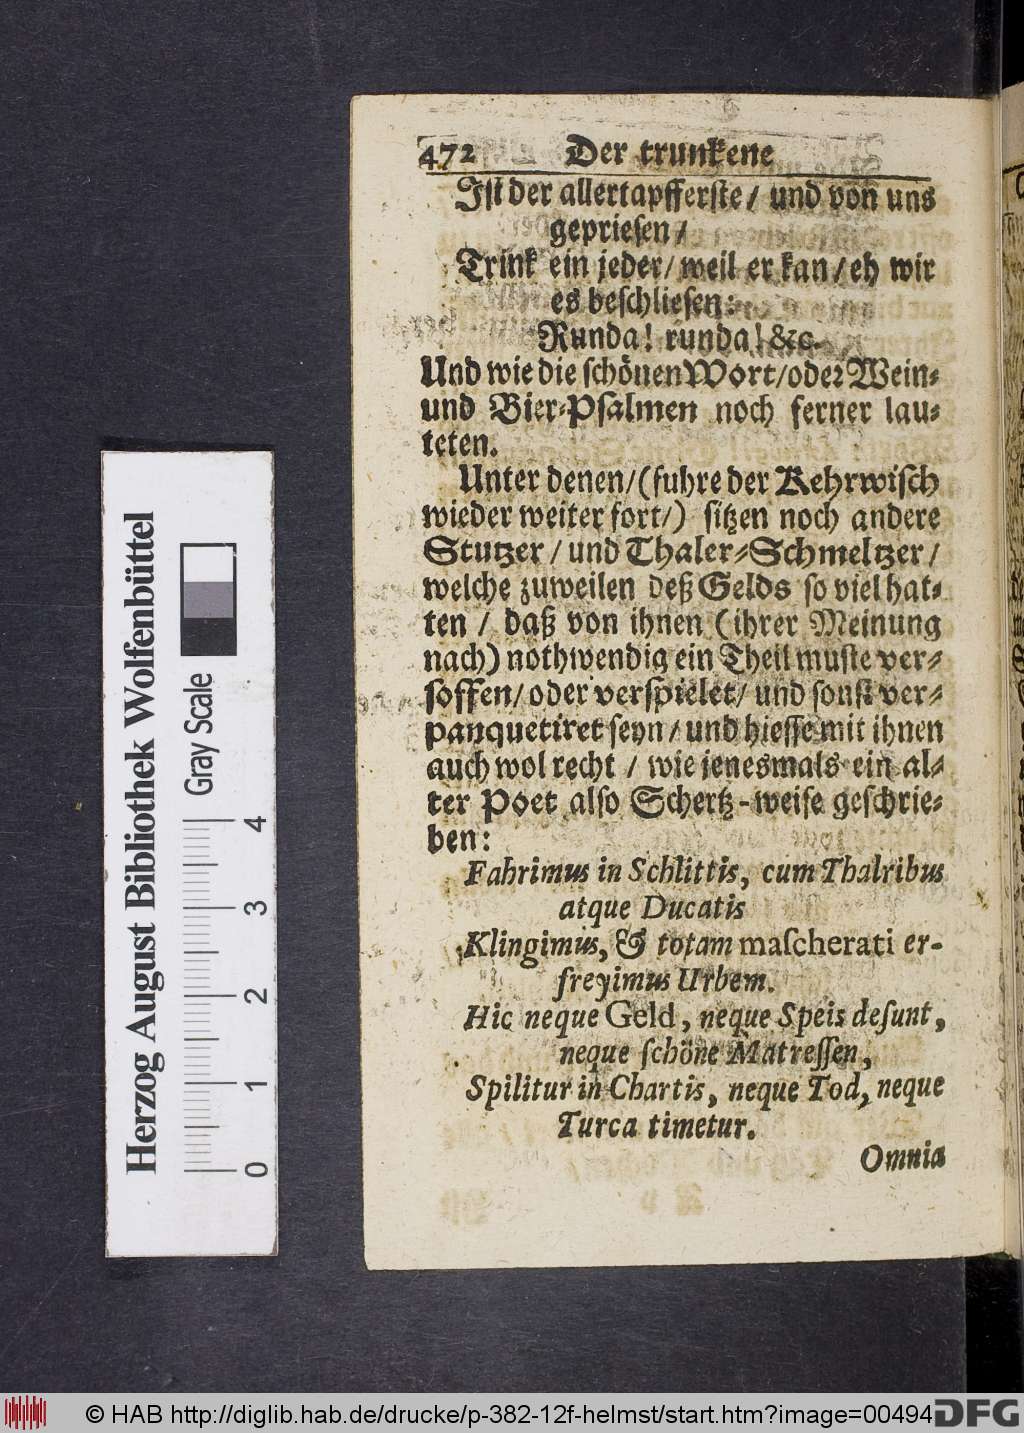 472 Der trunkene
Iſt der allertapfferſte / und von uns
geprieſen /
Trink ein jeder / weil er kan / eh wir
es beſchlieſen:
Runda! runda! &c.
Und wie die ſchönen Wort / oder Wein-
und Bier-Pſalmen noch ferner lau-
teten.
Unter denen / (fuhre der Kehrwiſch
wieder weiter fort /) ſitzen noch andere
Stutzer / und Thaler-Schmeltzer /
welche zuweilen deß Gelds ſo viel hat-
ten / daß von ihnen (ihrer Meinung
nach) nothwendig ein Theil muſte ver-
ſoffen / oder verſpielet / und ſonſt ver-
panquetiret ſeyn / und hieſſe mit ihnen
auch wol recht / wie jenesmals ein al-
ter Poet alſo Schertz-weiſe geſchrie-
ben:
Fahrimus in Schlittis, cum Thalribus
atque Ducatis
Klingimus, & totam maſcherati er-
freyimus Urbem.
Hic neque Geld, neque Speis deſunt,
neque ſchöne Matreſſen,
Spilitur in Chartis, neque Tod, neque
Turca timetur.
Omnia
Herzog August Bibliothek Wolfenbüttel
Gray Scale
0 1 2 3 4
© HAB http://diglib.hab.de/drucke/p-382-12f-helmst/start.htm?image=00494
DFG